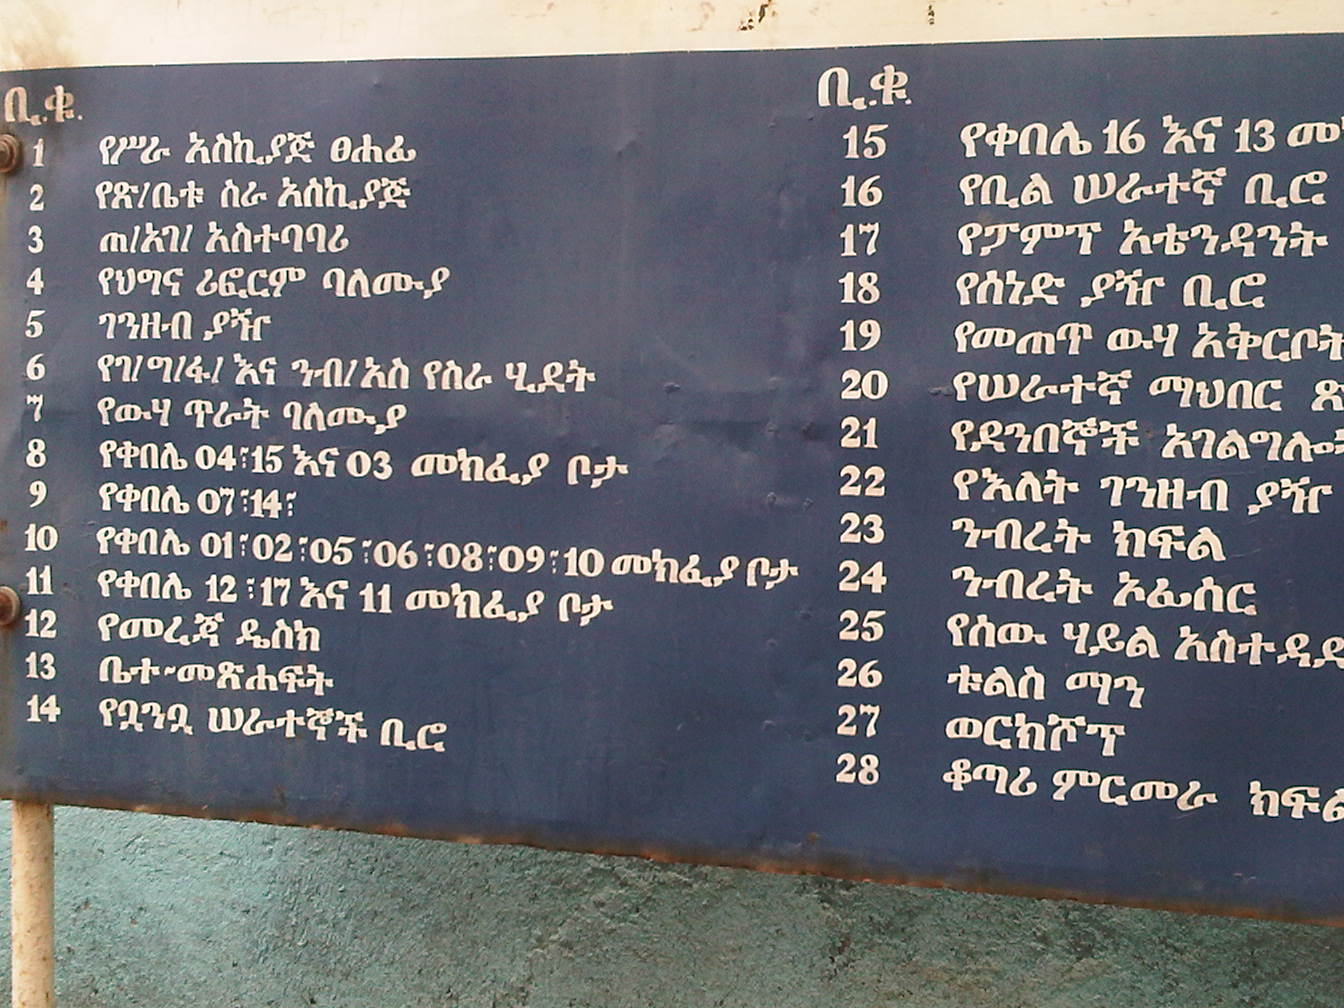 ቢ.ቁ.
1 የሥራ አስኪያጅ ፀሐፊ
2 የጽ/ቤቱ ስራ አስኪያጅ
3 ጠ/አገ/ አስተባባሪ
4 የህግና ሪፎርም ባለሙያ
5 ገንዘብ ያዥ
6 የገ/ግ/ፋ/ እና ንብ/አስ የስራ ሂደት
7 የውሃ ጥራት ባለሙያ
8 የቀበሌ 04፣15 እና 03 መክፈያ ቦታ
9 የቀበሌ 07፣14፣
10 የቀበሌ 01፣02፣05፣06፣08፣09፣10 መክፈያ ቦታ
11 የቀበሌ 12፣17 እና 11 መክፈያ ቦታ
12 የመረጃ ዴስክ
13 ቤተ-መጽሐፍት
14 የቧንቧ ሠራተኞች ቢሮ
ቢ.ቁ.
15 የቀበሌ 16 እና 13
16 የቢል ሠራተኛ ቢሮ
17 የፓምፕ አቴንዳንት
18 የሰነድ ያዥ ቢሮ
19 የመጠጥ ውሃ አቅርቦት
20 የሠራተኛ ማህበር
21 የደንበኞች
22 የእለት ገንዘብ ያዥ
23 ንብረት ክፍል
24 ንብረት ኦፊሰር
25 የሰው ሃይል
26 ቱልስ ማን
27 ወርክሾፕ
28 ቆጣሪ ምርመራ ክፍል